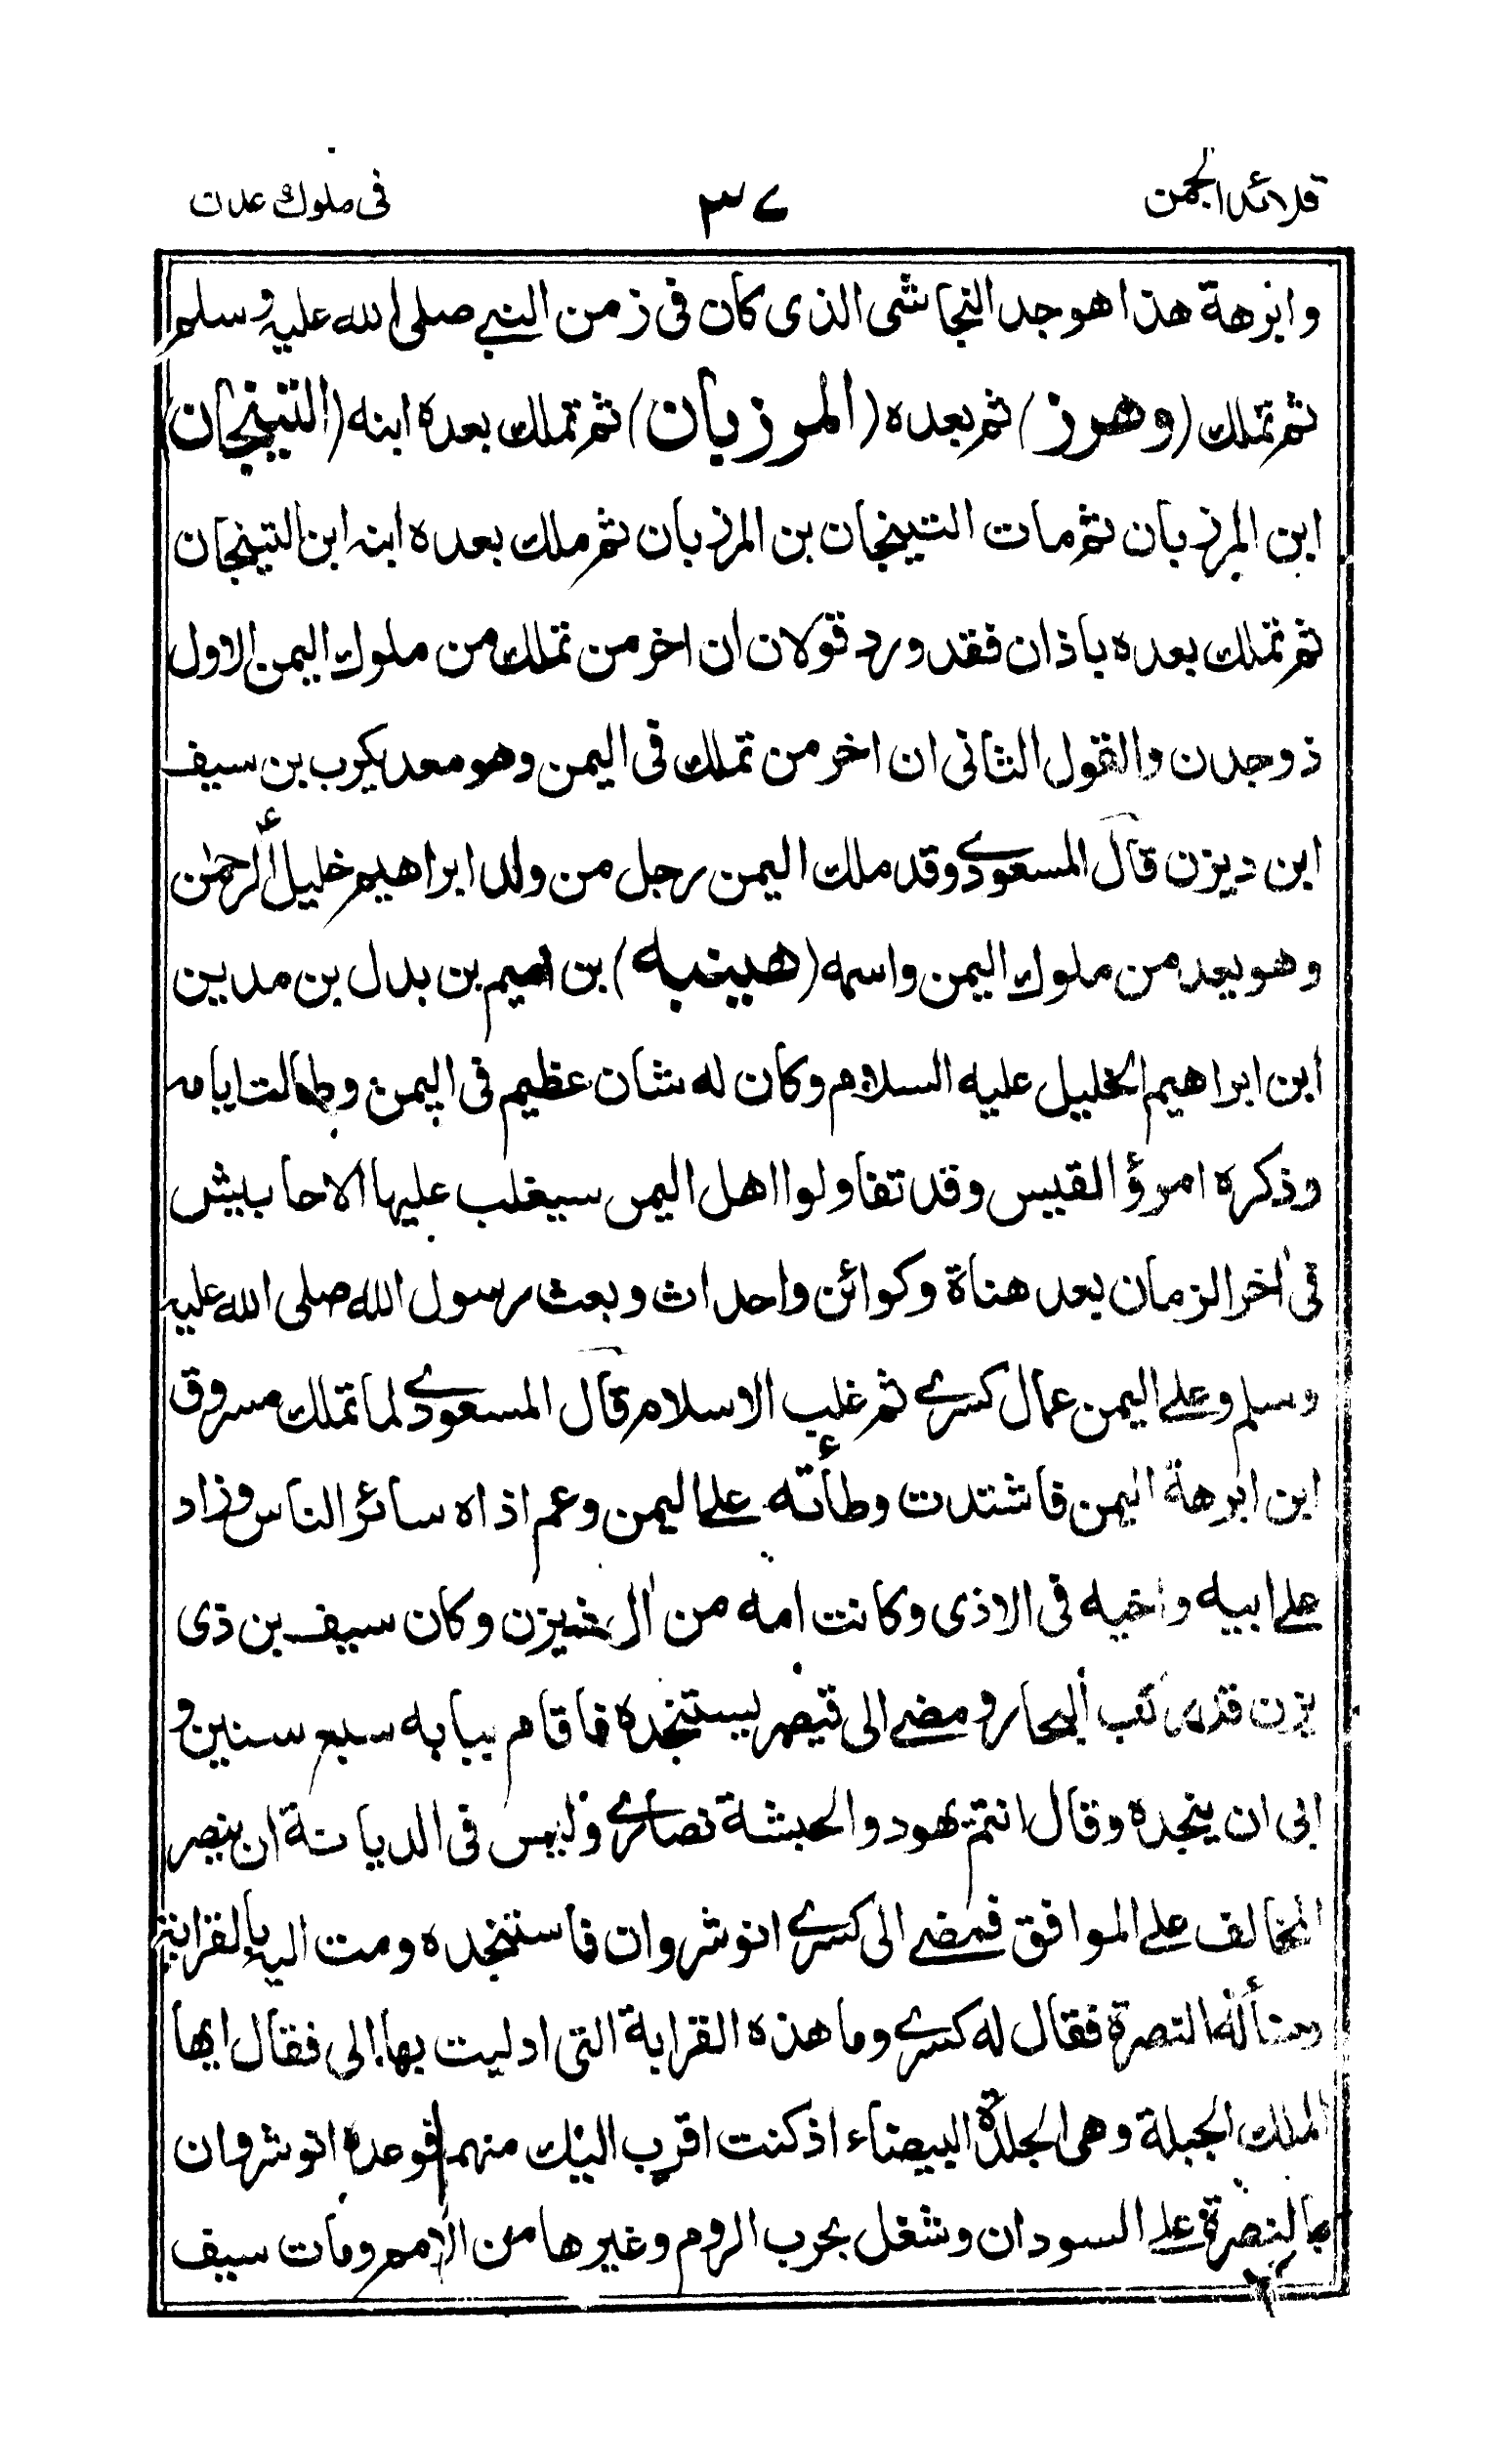 قلائد الجمن ٣٧ فى ملوك عدن
وابرهة هذا هو جد النجاشى الذى كان فى زمن النبي صلى الله عليه وسلم
ثم تملك (وهرز) ثم بعده (المرزبان) ثم تملك بعده ابنه (التينجان)
ابن المرزبان ثم مات التينجان بن المرزبان ثم ملك بعده ابنه ابن التينجان
ثم تملك بعده باذان فقد ورد قولان ان اخر من تملك من ملوك اليمن الاول
ذوجدن والقول الثانى ان اخر من تملك فى اليمن وهو معديكرب بن سيف
ابن ديزن قال المسعودي وقد ملك اليمن رجل من ولد ابراهيم خليل الرحمٰن
وهو يعد من ملوك اليمن واسمه (هينبه) بن اميم بن بدل بن مدين
ابن ابراهيم الخليل عليه السلام وكان له شان عظيم فى اليمن وطالت ايامه
وذكره امرؤ القيس وقد تفاولوا اهل اليمن سيغلب عليها الاحابيش
فى اٰخر الزمان بعد هناة وكوائن واحداث وبعث رسول الله صلى الله عليه
وسلم وعلے اليمن عمال كسرے ثم غلب الاسلام قال المسعودي لما تملك مسروق
ابن ابرهة اليمن فاشتدت وطأته علے اليمن وعم اذاه سائر الناس وزاد
علے ابيه واخيه فى الاذى وكانت امه من اٰل ذيزن وكان سيف بن ذى
يزن قد ركب البحار ومضے الى قيصر يستنجده فاقام ببابه سبع سنين و
ابى ان ينجده وقال انتم يهود والحبشة نصارے وليس فى الديانة ان ينصر
المخالف علے الموافق فمضے الى كسرے انوشروان فاستنجده ومت اليه بالقرابة
وسأله النصرة فقال له كسرے وما هذه القرابة التى ادليت بها الى فقال ايها
الملك الجبلة وهى الجلدة البيضاء اذ كنت اقرب اليك منهم فوعده انوشروان
بالنصرة علے السودان وشغل بحرب الروم وغيرها من الامم ومات سيف